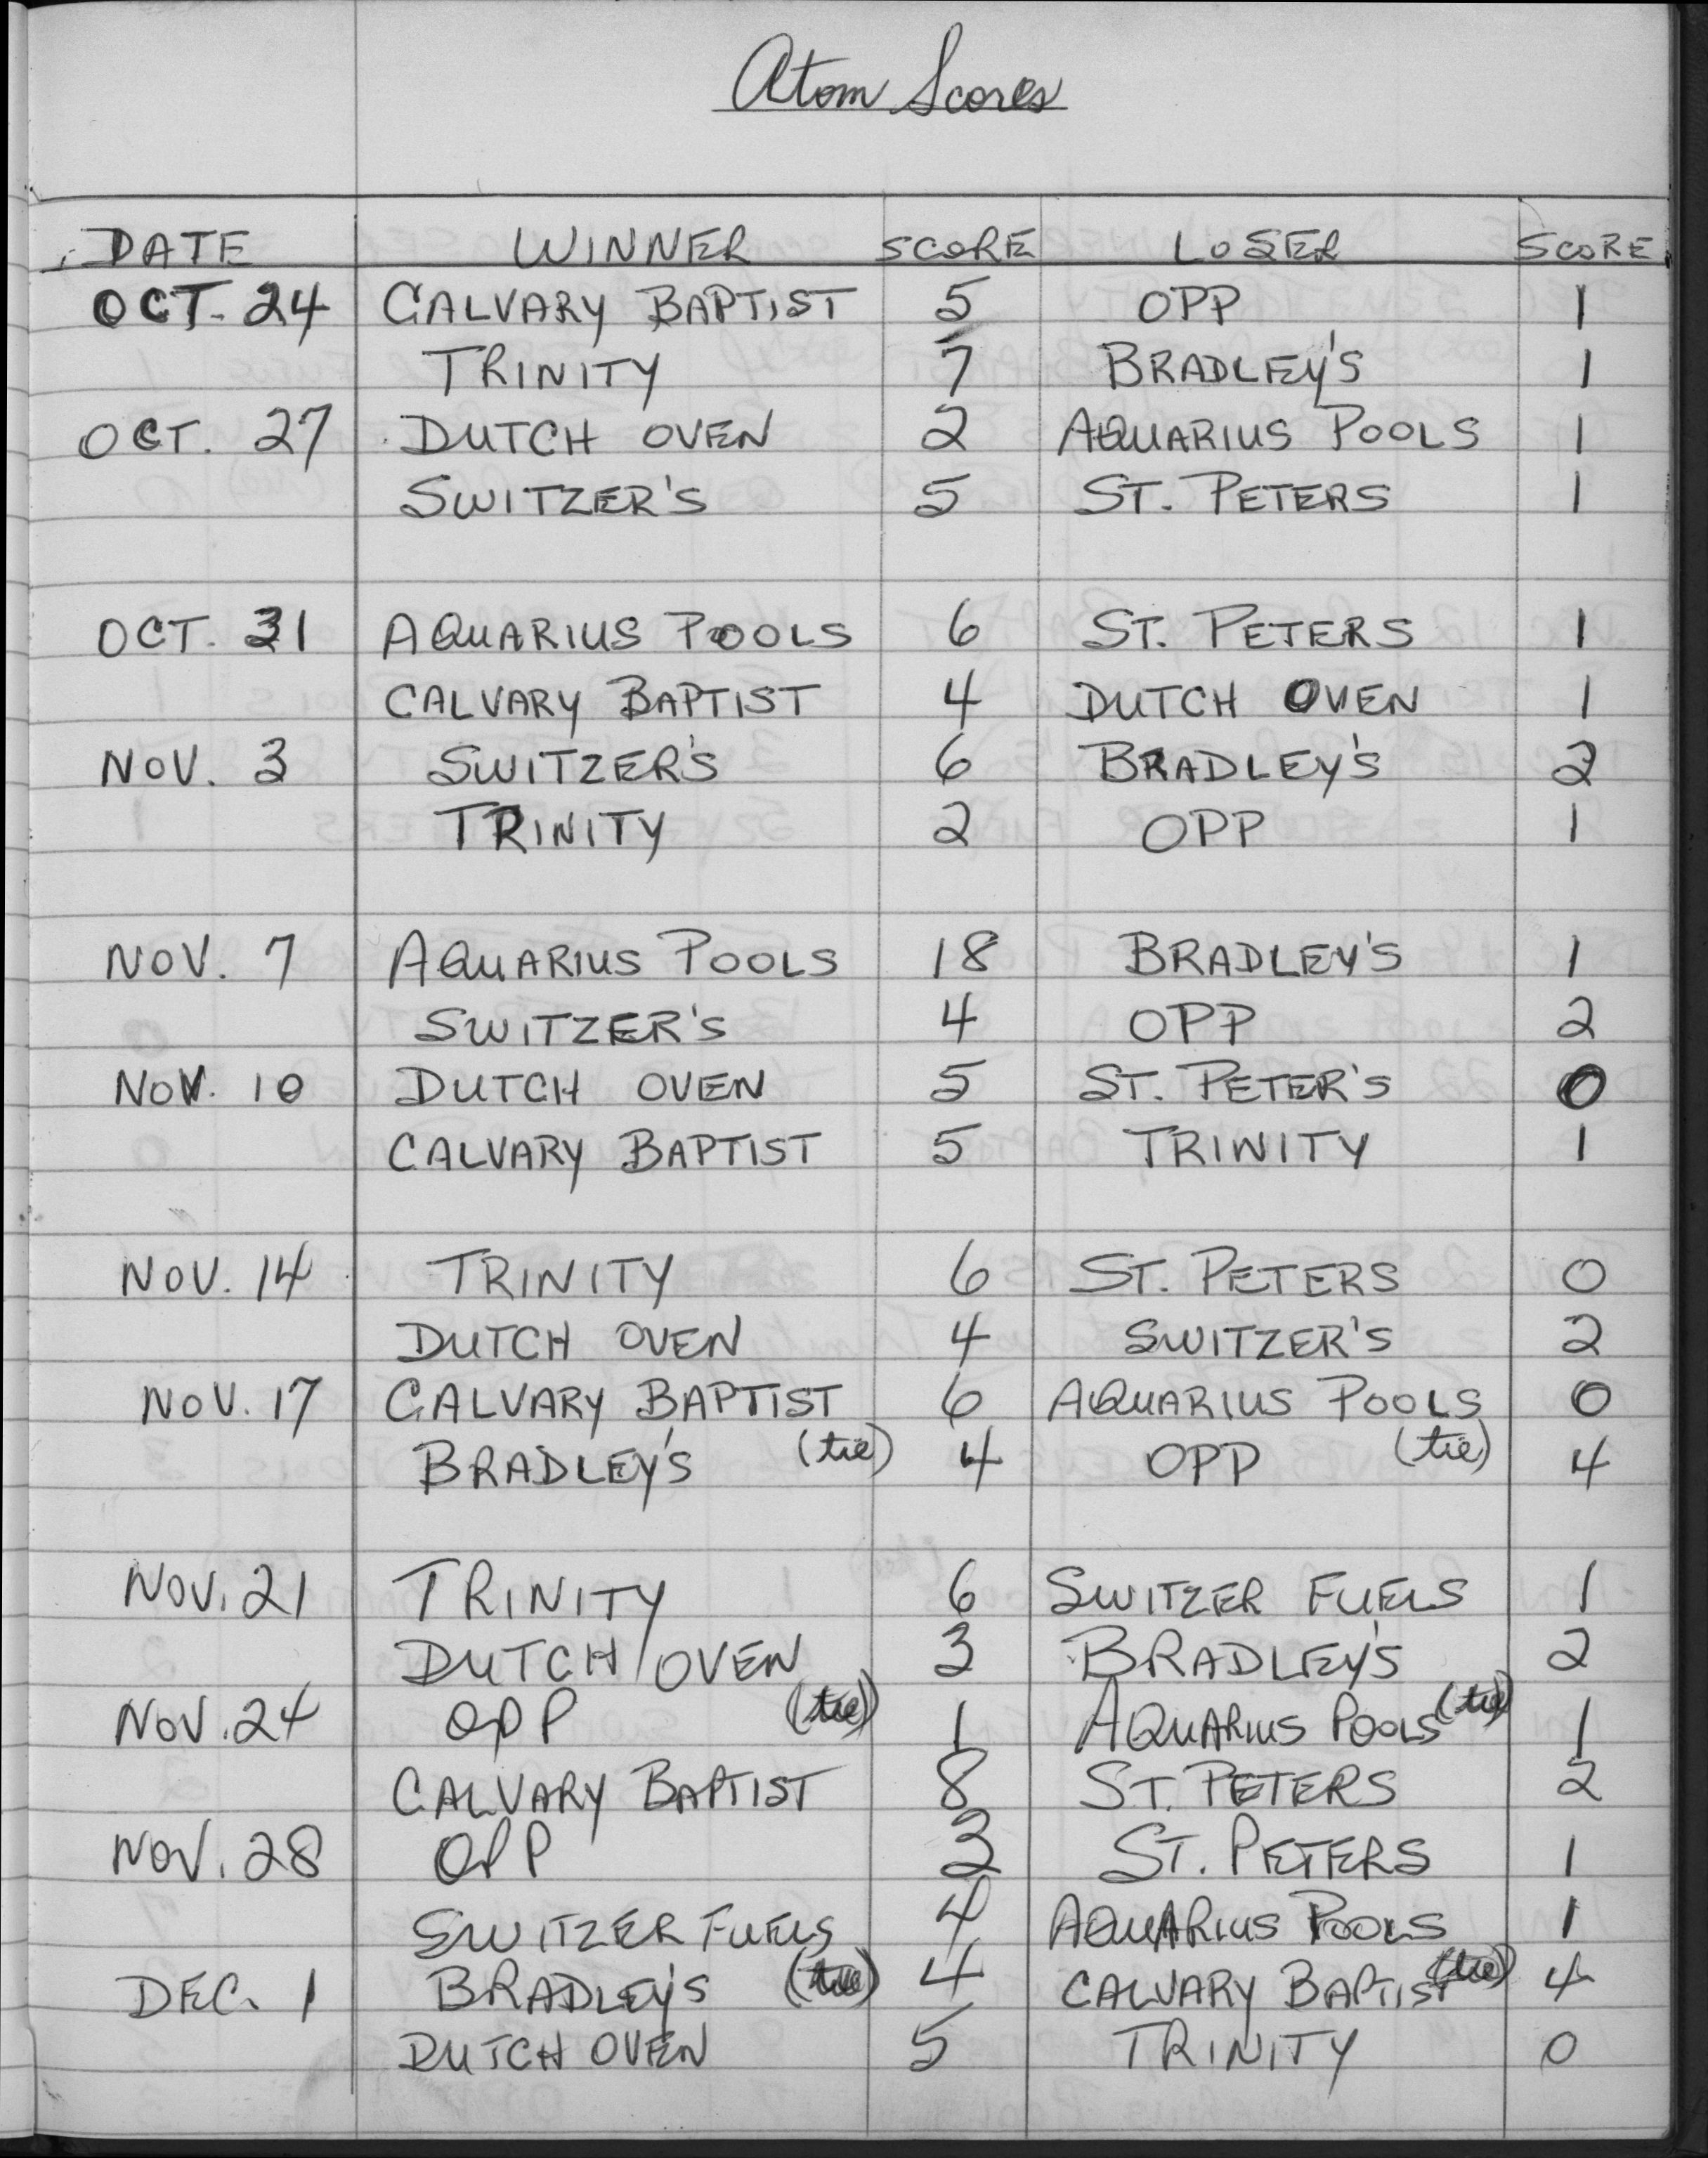 Atom Scores
DATE WINNER SCORE LOSER SCORE
OCT. 24 CALVARY BAPTIST 5 OPP 1
TRINITY 7 BRADLEY'S 1
OCT. 27 DUTCH OVEN 2 AQUARIUS POOLS 1
SWITZER'S 5 ST. PETERS 1
OCT. 31 AQUARIUS POOLS 6 ST. PETERS 1
CALVARY BAPTIST 4 DUTCH OVEN 1
NOV. 3 SWITZER'S 6 BRADLEY'S 2
TRINITY 2 OPP 1
NOV. 7 AQUARIUS POOLS 18 BRADLEY'S 1
SWITZER'S 4 OPP 2
NOV. 10 DUTCH OVEN 5 ST. PETER'S 0
CALVARY BAPTIST 5 TRINITY 1
NOV. 14 TRINITY 6 ST. PETERS 0
DUTCH OVEN 4 SWITZER'S 2
NOV. 17 CALVARY BAPTIST 6 AQUARIUS POOLS 0
BRADLEY'S (tie) 4 OPP (tie) 4
NOV. 21 TRINITY 6 SWITZER FUELS 1
DUTCH OVEN 3 BRADLEY'S 2
NOV. 24 OPP (tie) 1 AQUARIUS POOLS (tie) 1
CALVARY BAPTIST 8 ST. PETERS 2
NOV. 28 OPP 3 ST. PETERS 1
SWITZER FUELS 4 AQUARIUS POOLS 1
DEC. 1 BRADLEY'S (tie) 4 CALVARY BAPTIST (tie) 4
DUTCH OVEN 5 TRINITY 0